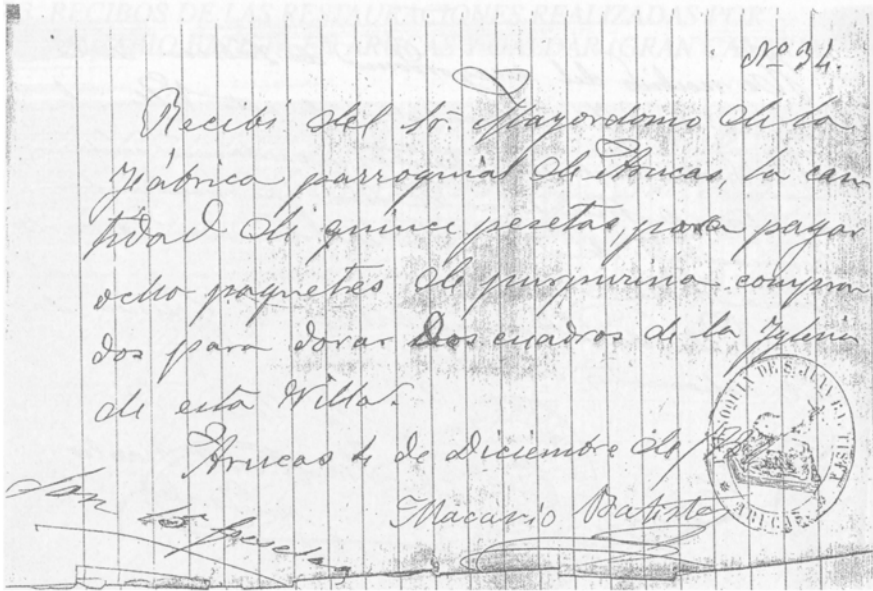 RECIBOS DE LAS RESTAURACIONES REALIZADAS POR
Nº 34.
Recibí del Sr. Mayordomo de la
Fábrica parroquial de Arucas, la can
tidad de quince pesetas, para pagar
ocho paquetes de purpurina compra
dos para dorar dos cuadros de la Yglesia
de esta Villa.
Arucas 4 de Diciembre de
Macario Batista
Son 15 pesetas
PARROQUIA DE S. JUAN BAUTISTA
ARUCAS